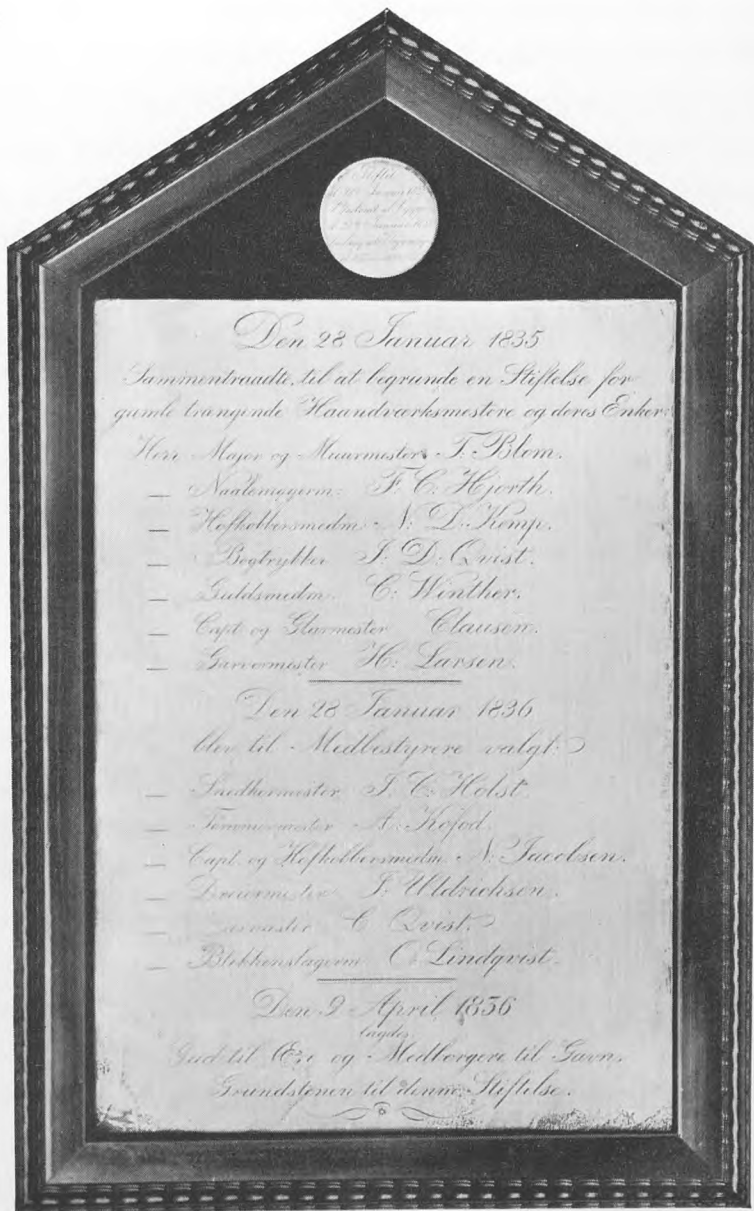 Stiftet
Den 28 Januar 1835
Sammentraadte, til at begrunde en Stiftelse for
gamle trængende Haandværksmestere og deres Enker:
Herr Major og Muurmester T. Blom.
— Naalemagerm. F. C. Hjorth.
— Hofkobbersmedm. N. D. Kemp.
— Bogtrykker J. D. Qvist.
— Guldsmedm. C. Winther.
— Capt og Glarmester Clausen.
— Garvermester H. Larsen.
Den 28 Januar 1836
blev til Medbestyrere valgt:
— Snedkermester J. C. Holst.
— Tømmermester A. Kofod.
— Capt. og Hofkobbersmedm. N. Jacobsen.
— Dreiermester J. Uldrichsen.
— C. Qvist.
— Blikkenslagerm. C. Lindqvist.
Den 9 April 1836
lagdes
Gud til Ære og Medborgere til Gavn,
Grundstenen til denne Stiftelse.